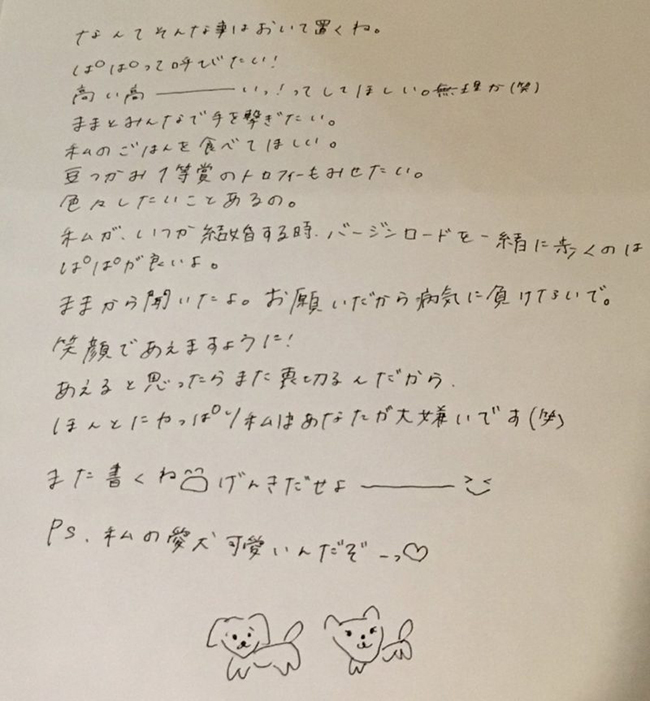 なんてそんな事はおいて置くね。
ぱぱって呼びたい!
高い高————いっ!ってしてほしい。無理か(笑)
ままとみんなで手を繋ぎたい。
私のごはんを食べてほしい。
豆つかみ1等賞のトロフィーもみせたい。
色々したいことあるの。
私が、いつか結婚する時、バージンロードを一緒に歩くのは
ぱぱが良いよ。
ままから聞いたよ。お願いだから病気に負けないで。
笑顔であえますように!
あえると思ったらまた裏切るんだから、
ほんとにやっぱり私はあなたが大嫌いです(笑)
また書くね げんきだせよ————
PS、私の愛犬可愛いんだぞーっ♡